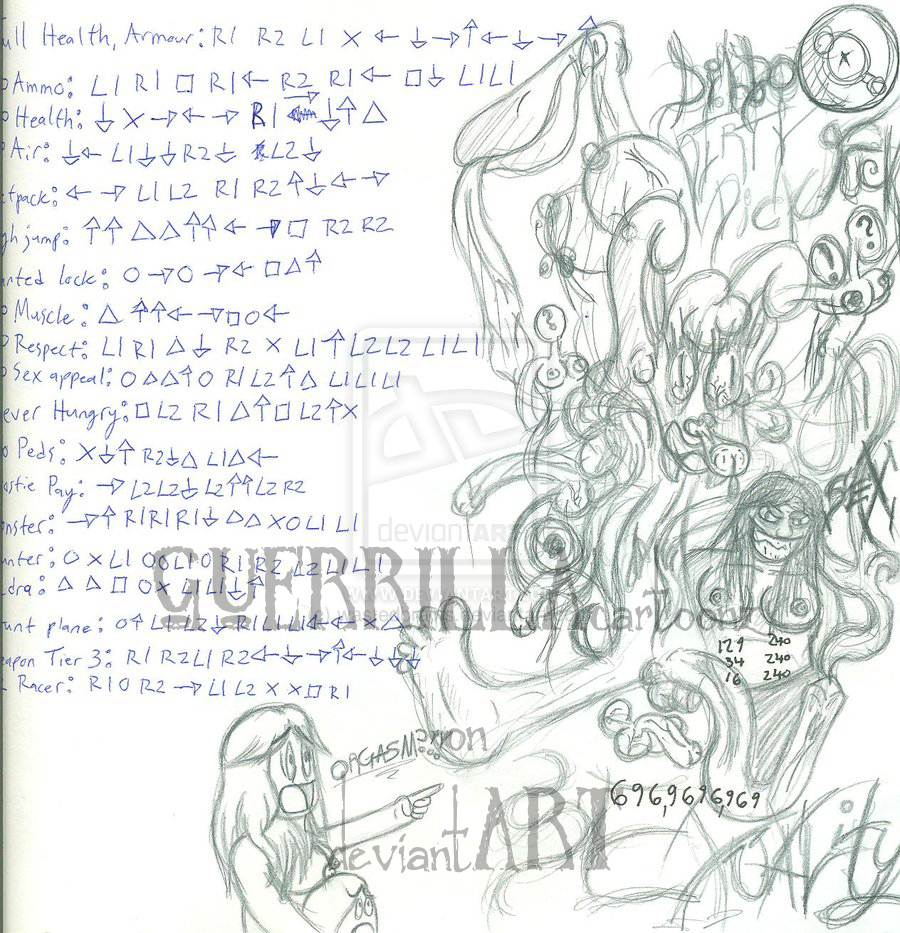 ull Health, Armour: R1 R2 L1 X ← ↓ → ↑ ← ↓ → ↑
Ammo: L1 R1 □ R1 ← R2 R1 ← □ ↓ L1 L1
Health: ↓ X → ← → R1 → ↓ ↑ △
Air: ↓ ← L1 ↓ ↓ R2 ↓ L2 ↓
tpack: ← → L1 L2 R1 R2 ↑ ↓ ← →
gh jump: ↑ ↑ △ △ ↑ ↑ ← □ R2 R2
nted lock: O → O → ← □ △ ↑
Muscle: △ ↑ ↑ ← → □ O ←
Respect: L1 R1 △ ↓ R2 X L1 ↑ L2 L2 L1 L1
Sex appeal: O △ △ ↑ O R1 L2 ↑ △ L1 L1 L1
ever Hungry: □ L2 R1 △ ↑ □ L2 ↑ X
Peds: X ↓ ↑ R2 ↓ △ L1 △ ←
astic Pay: → L2 L2 ↓ L2 ↑ ↑ L2 R2
onster: → ↑ R1 R1 R1 ↓ △ △ X O L1 L1
unter: O X L1 O O L1 O R1 R2 L2 L1 L1
dra: △ △ □ O X L1 L1 ↓ ↑
unt plane: O ↑ L1 L2 ↓ R1 L1 L1 ← ← X △
eapon Tier 3: R1 R2 L1 R2 ← ↓ → ↑ ← ↓ ↓ ↓
Racer: R1 O R2 → L1 L2 X X □ R1
DiCK
SEX
129 240
34 240
16 240
ORGASM??
696,9696,969
deviantART
GUERRILLA cartoonz
on
deviantART